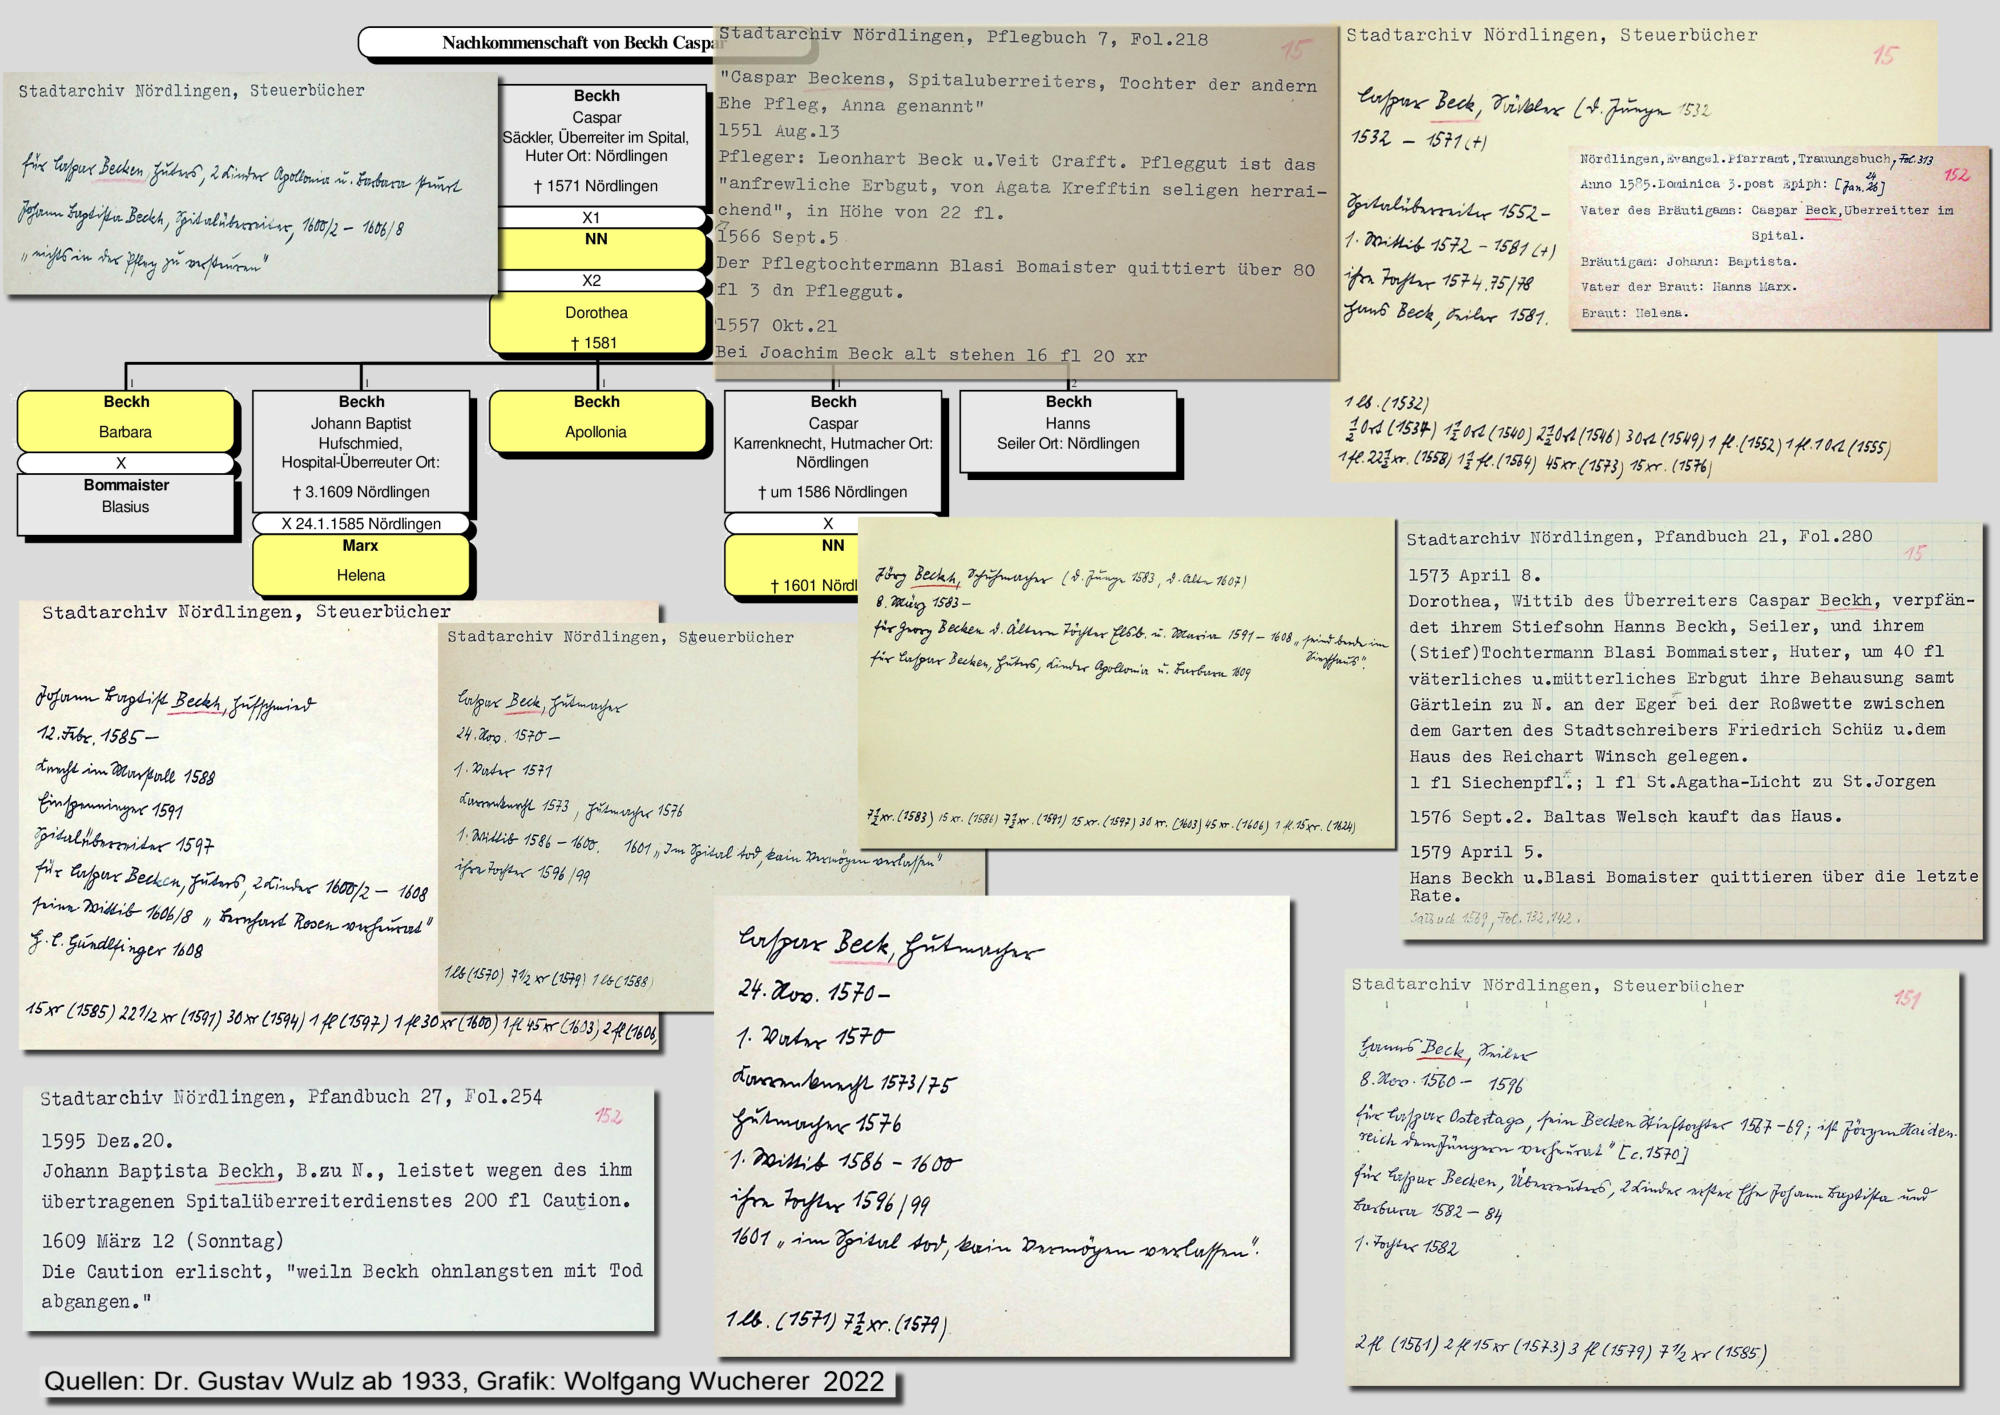 Nachkommenschaft von Beckh Caspar
Beckh
Caspar
Säckler, Überreiter im Spital,
Huter Ort: Nördlingen
† 1571 Nördlingen
X1
NN
X2
Dorothea
† 1581
Beckh
Barbara
X
Bommaister
Blasius
Beckh
Johann Baptist
Hufschmied,
Hospital-Überreuter Ort:
† 3.1609 Nördlingen
X 24.1.1585 Nördlingen
Marx
Helena
Beckh
Apollonia
Beckh
Caspar
Karrenknecht, Hutmacher Ort:
Nördlingen
† um 1586 Nördlingen
X
NN
† 1601 Nördl
Beckh
Hanns
Seiler Ort: Nördlingen
Stadtarchiv Nördlingen, Steuerbücher
für Caspar Becken, Huters, 2 Kinder Apollonia u. Barbara steuert
Johann Baptista Beckh, Spitalüberreiter, 1600/2 – 1606/8
"nichts in der Pfleg zu versteuren"
Stadtarchiv Nördlingen, Pflegbuch 7, Fol.218
15
"Caspar Beckens, Spitaluberreiters, Tochter der andern
Ehe Pfleg, Anna genannt"
1551 Aug.13
Pfleger: Leonhart Beck u.Veit Crafft. Pfleggut ist das
"anfrewliche Erbgut, von Agata Krefftin seligen herrai-
chend", in Höhe von 22 fl.
1566 Sept.5
Der Pflegtochtermann Blasi Bomaister quittiert über 80
fl 3 dn Pfleggut.
1557 Okt.21
Bei Joachim Beck alt stehen 16 fl 20 xr
Stadtarchiv Nördlingen, Steuerbücher
15
Caspar Beck, Säckler (d. Junge 1532
1532 – 1571 (+)
Spitalüberreiter 1552–
1. Wittib 1572 – 1581 (+)
ihre Tochter 1574.75/78
Hans Beck, Seiler 1581.
1 lb. (1532)
½ Ort (1534) 1½ Ort (1540) 2½ Ort (1546) 3 Ort (1549) 1 fl. (1552) 1 fl. 1 Ort (1555)
1 fl. 22½ xr. (1558) 1½ fl. (1564) 45 xr. (1573) 15 xr. (1576)
Nördlingen,Evangel.Pfarramt,Trauungsbuch, Fol. 313
152
Anno 1585.Dominica 3.post Epiph: [Jan. 24/26]
Vater des Bräutigams: Caspar Beck,Uberreitter im
Spital.
Bräutigam: Johann: Baptista.
Vater der Braut: Hanns Marx.
Braut: Helena.
Jörg Beckh, Schuhmacher (d. Junge 1583, d. Alte 1607)
8. März 1583 –
für Georg Becken d. Ältern Töchter Elsb. u. Maria 1591 – 1608 "seind beede im
Siechhaus".
für Caspar Becken, Huters, Kinder Apollonia u. Barbara 1609
7½ xr. (1583) 15 xr. (1586) 7½ xr. (1591) 15 xr. (1597) 30 xr. (1603) 45 xr. (1606) 1 fl. 15 xr. (1624)
Stadtarchiv Nördlingen, Pfandbuch 21, Fol.280
15
1573 April 8.
Dorothea, Wittib des Überreiters Caspar Beckh, verpfän-
det ihrem Stiefsohn Hanns Beckh, Seiler, und ihrem
(Stief)Tochtermann Blasi Bommaister, Huter, um 40 fl
väterliches u.mütterliches Erbgut ihre Behausung samt
Gärtlein zu N. an der Eger bei der Roßwette zwischen
dem Garten des Stadtschreibers Friedrich Schüz u.dem
Haus des Reichart Winsch gelegen.
1 fl Siechenpfl.; 1 fl St.Agatha-Licht zu St.Jorgen
1576 Sept.2. Baltas Welsch kauft das Haus.
1579 April 5.
Hans Beckh u.Blasi Bomaister quittieren über die letzte
Rate.
Salbuch 1569, Fol. 132, 142.
Stadtarchiv Nördlingen, Steuerbücher
Johann Baptist Beckh, Hufschmied
12. Febr. 1585 –
Knecht im Marstall 1588
Einspenninger 1591
Spitalüberreiter 1597
für Caspar Becken, Huters, 2 Kinder 1600/2 – 1608
seine Wittib 1606/8 "Bernhart Rosen verheurat"
H. C. Gundlfinger 1608
15 xr (1585) 22 1/2 xr (1591) 30 xr (1594) 1 fl (1597) 1 fl 30 xr (1600) 1 fl 45 xr (1603) 2 fl (1606
Stadtarchiv Nördlingen, Steuerbücher
Caspar Beck, Hutmacher
24. Nov. 1570 –
1. Vater 1571
Karrenknecht 1573, Hutmacher 1576
1. Wittib 1586 – 1600. 1601 "Im Spital tod, kain Vermögen verlassen"
ihre Tochter 1596/99
1 lb (1570) 7 1/2 xr (1579) 1 lb (1588)
Caspar Beck, Hutmacher
24. Nov. 1570 –
1. Vater 1570
Karrenknecht 1573/75
Hutmacher 1576
1. Wittib 1586 – 1600
ihre Tochter 1596/99
1601 "im Spital tod, kain Vermögen verlassen".
1 lb. (1571) 7½ xr. (1579)
Stadtarchiv Nördlingen, Steuerbücher
151
Hanns Beck, Seiler
8. Nov. 1560 – 1596
für Caspar Ostertags, sein Becken Stieftochter 1567–69; ist Jörgen Haiden-
reich dem Jüngern verheurat" [c. 1570]
für Caspar Becken, Überreuters, 2 Kinder erster Ehe Johann Baptista und
Barbara 1582 – 84
1. Tochter 1582
2 fl (1561) 2 fl 15 xr (1573) 3 fl (1579) 7 1/2 xr (1585)
Stadtarchiv Nördlingen, Pfandbuch 27, Fol.254
152
1595 Dez.20.
Johann Baptista Beckh, B.zu N., leistet wegen des ihm
übertragenen Spitalüberreiterdienstes 200 fl Caution.
1609 März 12 (Sonntag)
Die Caution erlischt, "weiln Beckh ohnlangsten mit Tod
abgangen."
Quellen: Dr. Gustav Wulz ab 1933, Grafik: Wolfgang Wucherer 2022